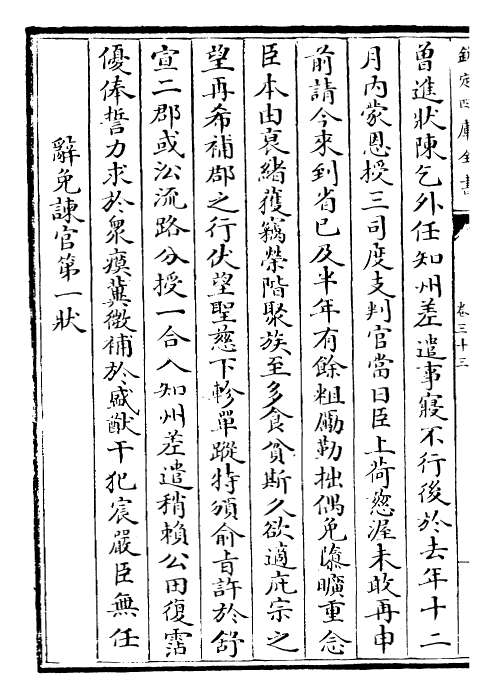 欽定四庫全書
卷三十三
曽進狀陳乞外任知州差遣事寢不行後於去年十二
月内蒙恩授三司度支判官當日臣上荷慈渥未敢再申
前請今來到省已及半年有餘粗勵勤拙偶免隳曠重念
臣本由衰緒獲竊榮階聚族至多食貧斯久欲適庇宗之
望再希補郡之行伏望聖慈下軫單蹤特頒俞㫖許於舒
宣二郡或㳂流路分授一合入知州差遣稍賴公田復霑
優俸誓力求於衆瘼冀㣲補於盛猷干犯宸嚴臣無任
辭免諫官第一狀